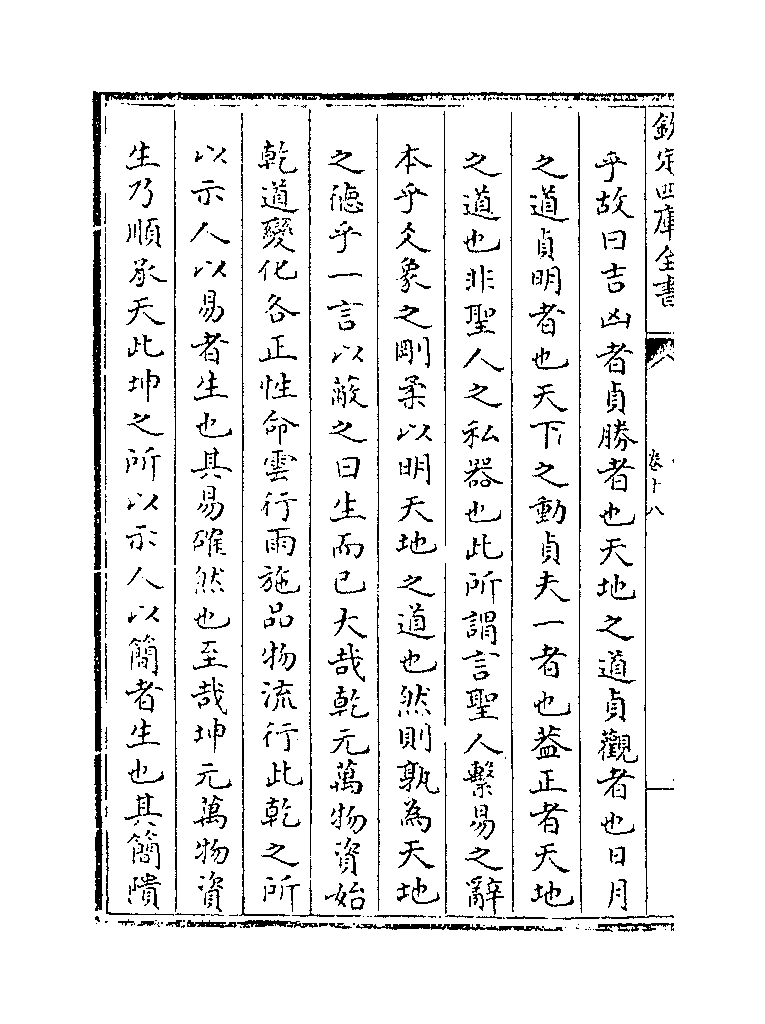 欽定四庫全書
卷十八
乎故曰吉凶者貞勝者也天地之道貞觀者也日月
之道貞明者也天下之動貞夫一者也葢正者天地
之道也非聖人之私器也此所謂言聖人繫易之辭
本乎爻象之剛柔以明天地之道也然則孰為天地
之德乎一言以蔽之曰生而已大哉乾元萬物資始
乾道變化各正性命雲行雨施品物流行此乾之所
以示人以易者生也其易確然也至哉坤元萬物資
生乃順承天此坤之所以示人以簡者生也其簡隤